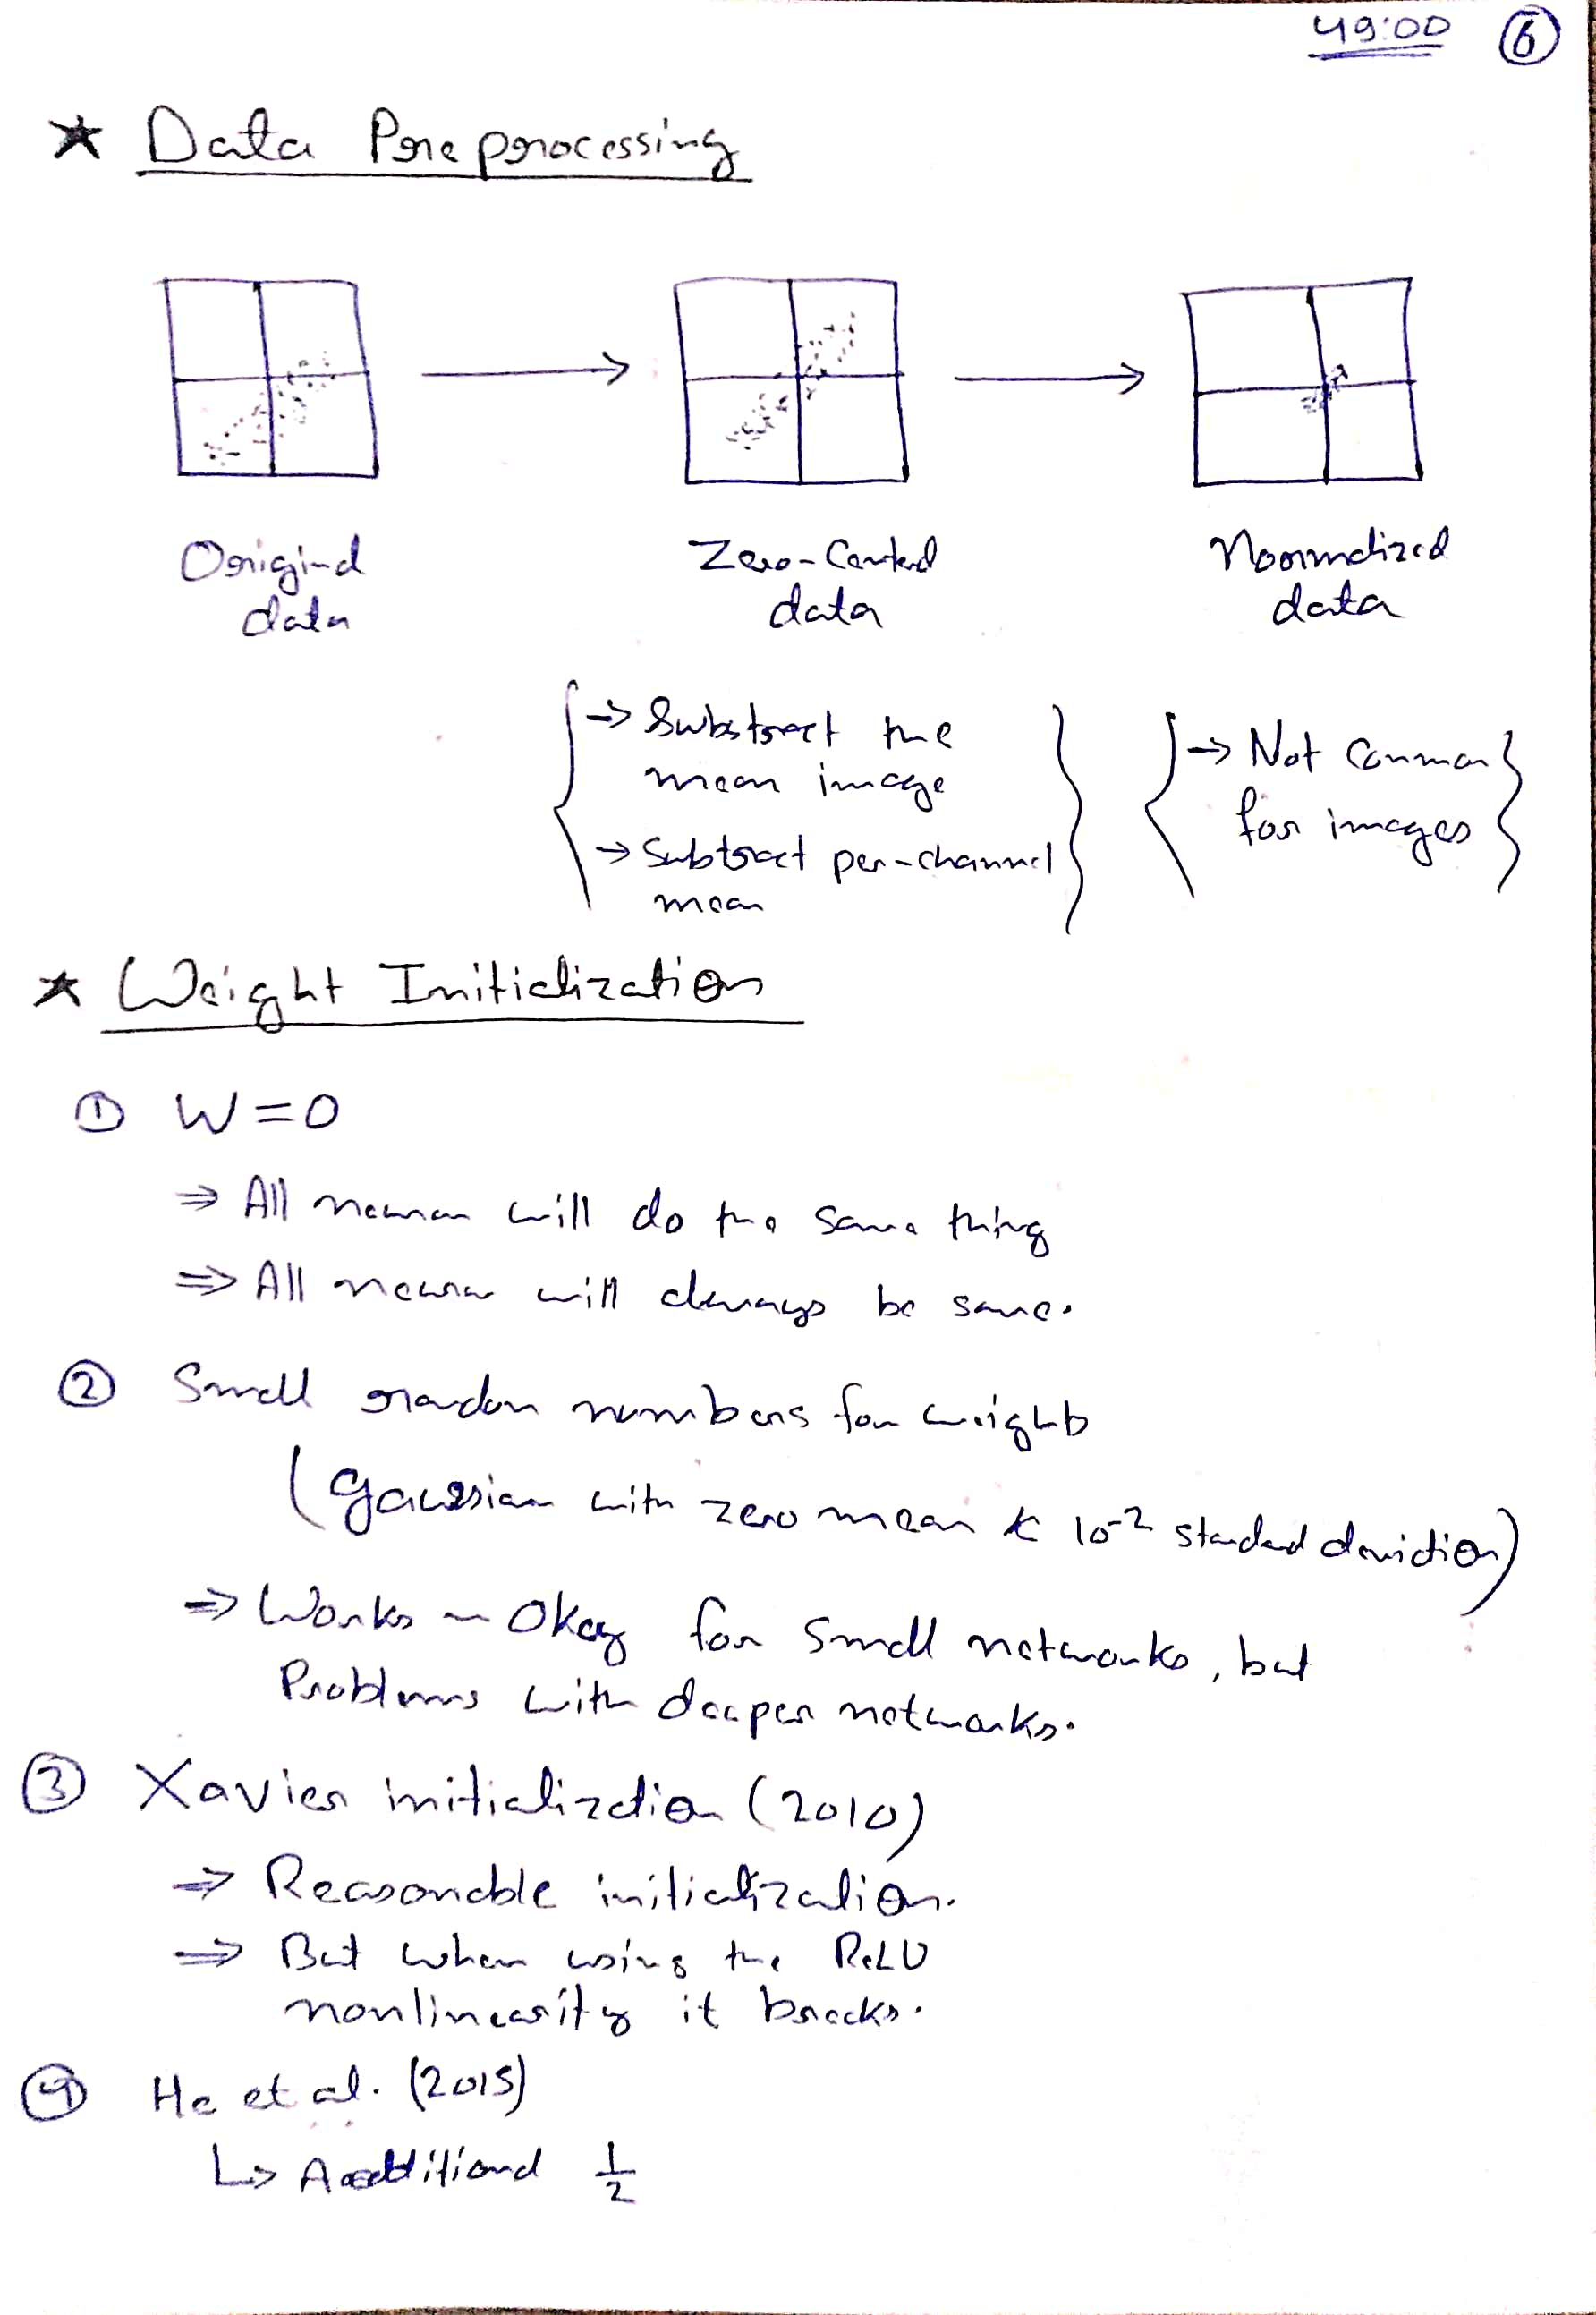 49:00 ⑥
★ Data Preprocessing
Original data
Zero-Centerd data
Normalized data
→ Substract the
mean image
→ Subtract per-channel
mean
→ Not common
for images
★ Weight Initialization
① W=0
⇒ All neuron will do the same thing
⇒ All neuron will always be same.
② Small random numbers for weights
(gaussian with zero mean & 10⁻² standard deviation)
⇒ Works ~ Okay for small networks, but
Problems with deeper networks.
③ Xavier initialization (2010)
⇒ Reasonable initialization.
⇒ But when using the ReLU
nonlinearity it breaks.
④ He et al. (2015)
↳ Additional 1/2